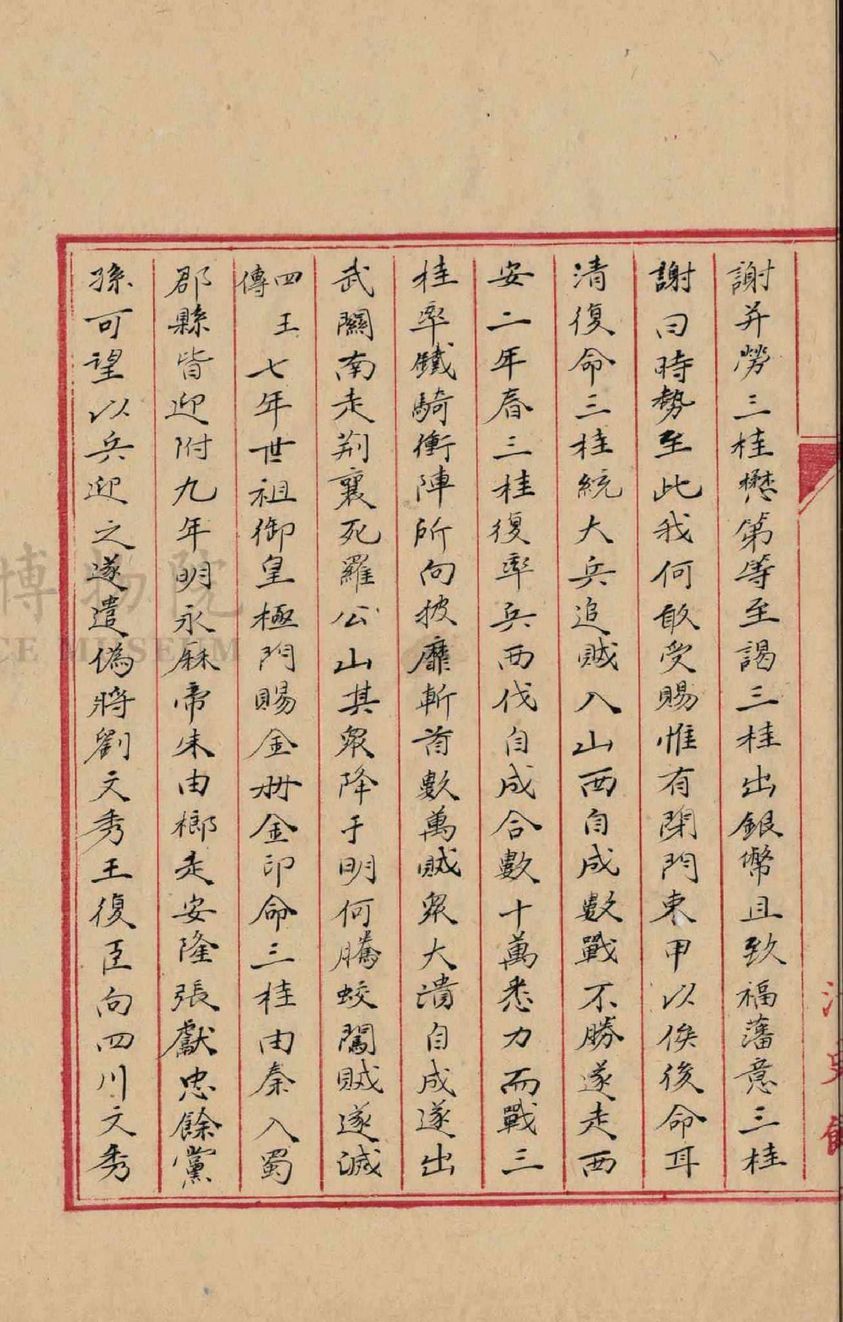 謝并勞三桂懋第等至謁三桂出銀幣且致福藩意三桂
謝曰時勢至此我何敢受賜惟有閉門束甲以俟後命耳
清復命三桂統大兵追賊入山西自成數戰不勝遂走西
安二年春三桂復率兵西伐自成合數十萬悉力而戰三
桂率鐵騎衝陣所向披靡斬首數萬賊眾大潰自成遂出
武關南走荆襄死羅公山其眾降于明何騰蛟闖賊遂滅
四王傳七年世祖御皇極門賜金冊金印命三桂由秦入蜀
郡縣皆迎附九年明永厤帝朱由榔走安隆張獻忠餘黨
孫可望以兵迎之遂遣偽將劉文秀王復臣向四川文秀
清史館
博物院
CE MUSEUM